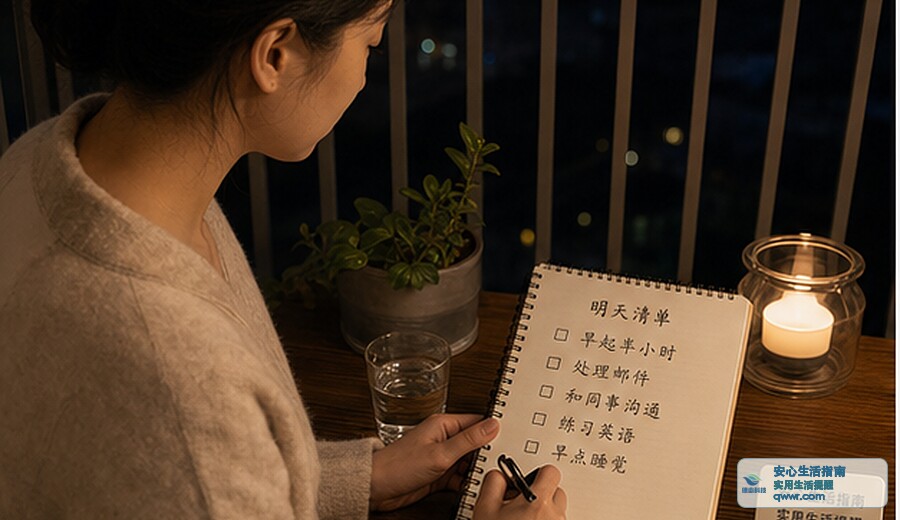 明天清单
☐ 早起半小时
☐ 处理邮件
☐ 和同事沟通
☐ 练习英语
☐ 早点睡觉
安心生活指南
实用生活提醒
qwwr.com
活指南
实用生活提醒